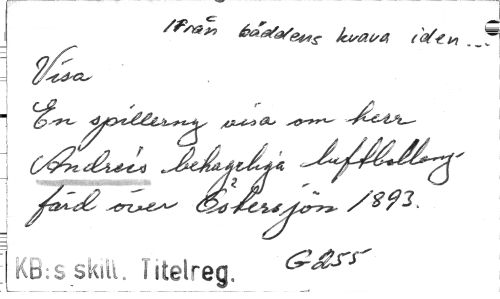 Från bäddens kvava iden...
Visa
En spillerny visa om herr
Andreis behageliga luftballong-
färd över Östersjön 1893.
G 255
KB:s skill. Titelreg.